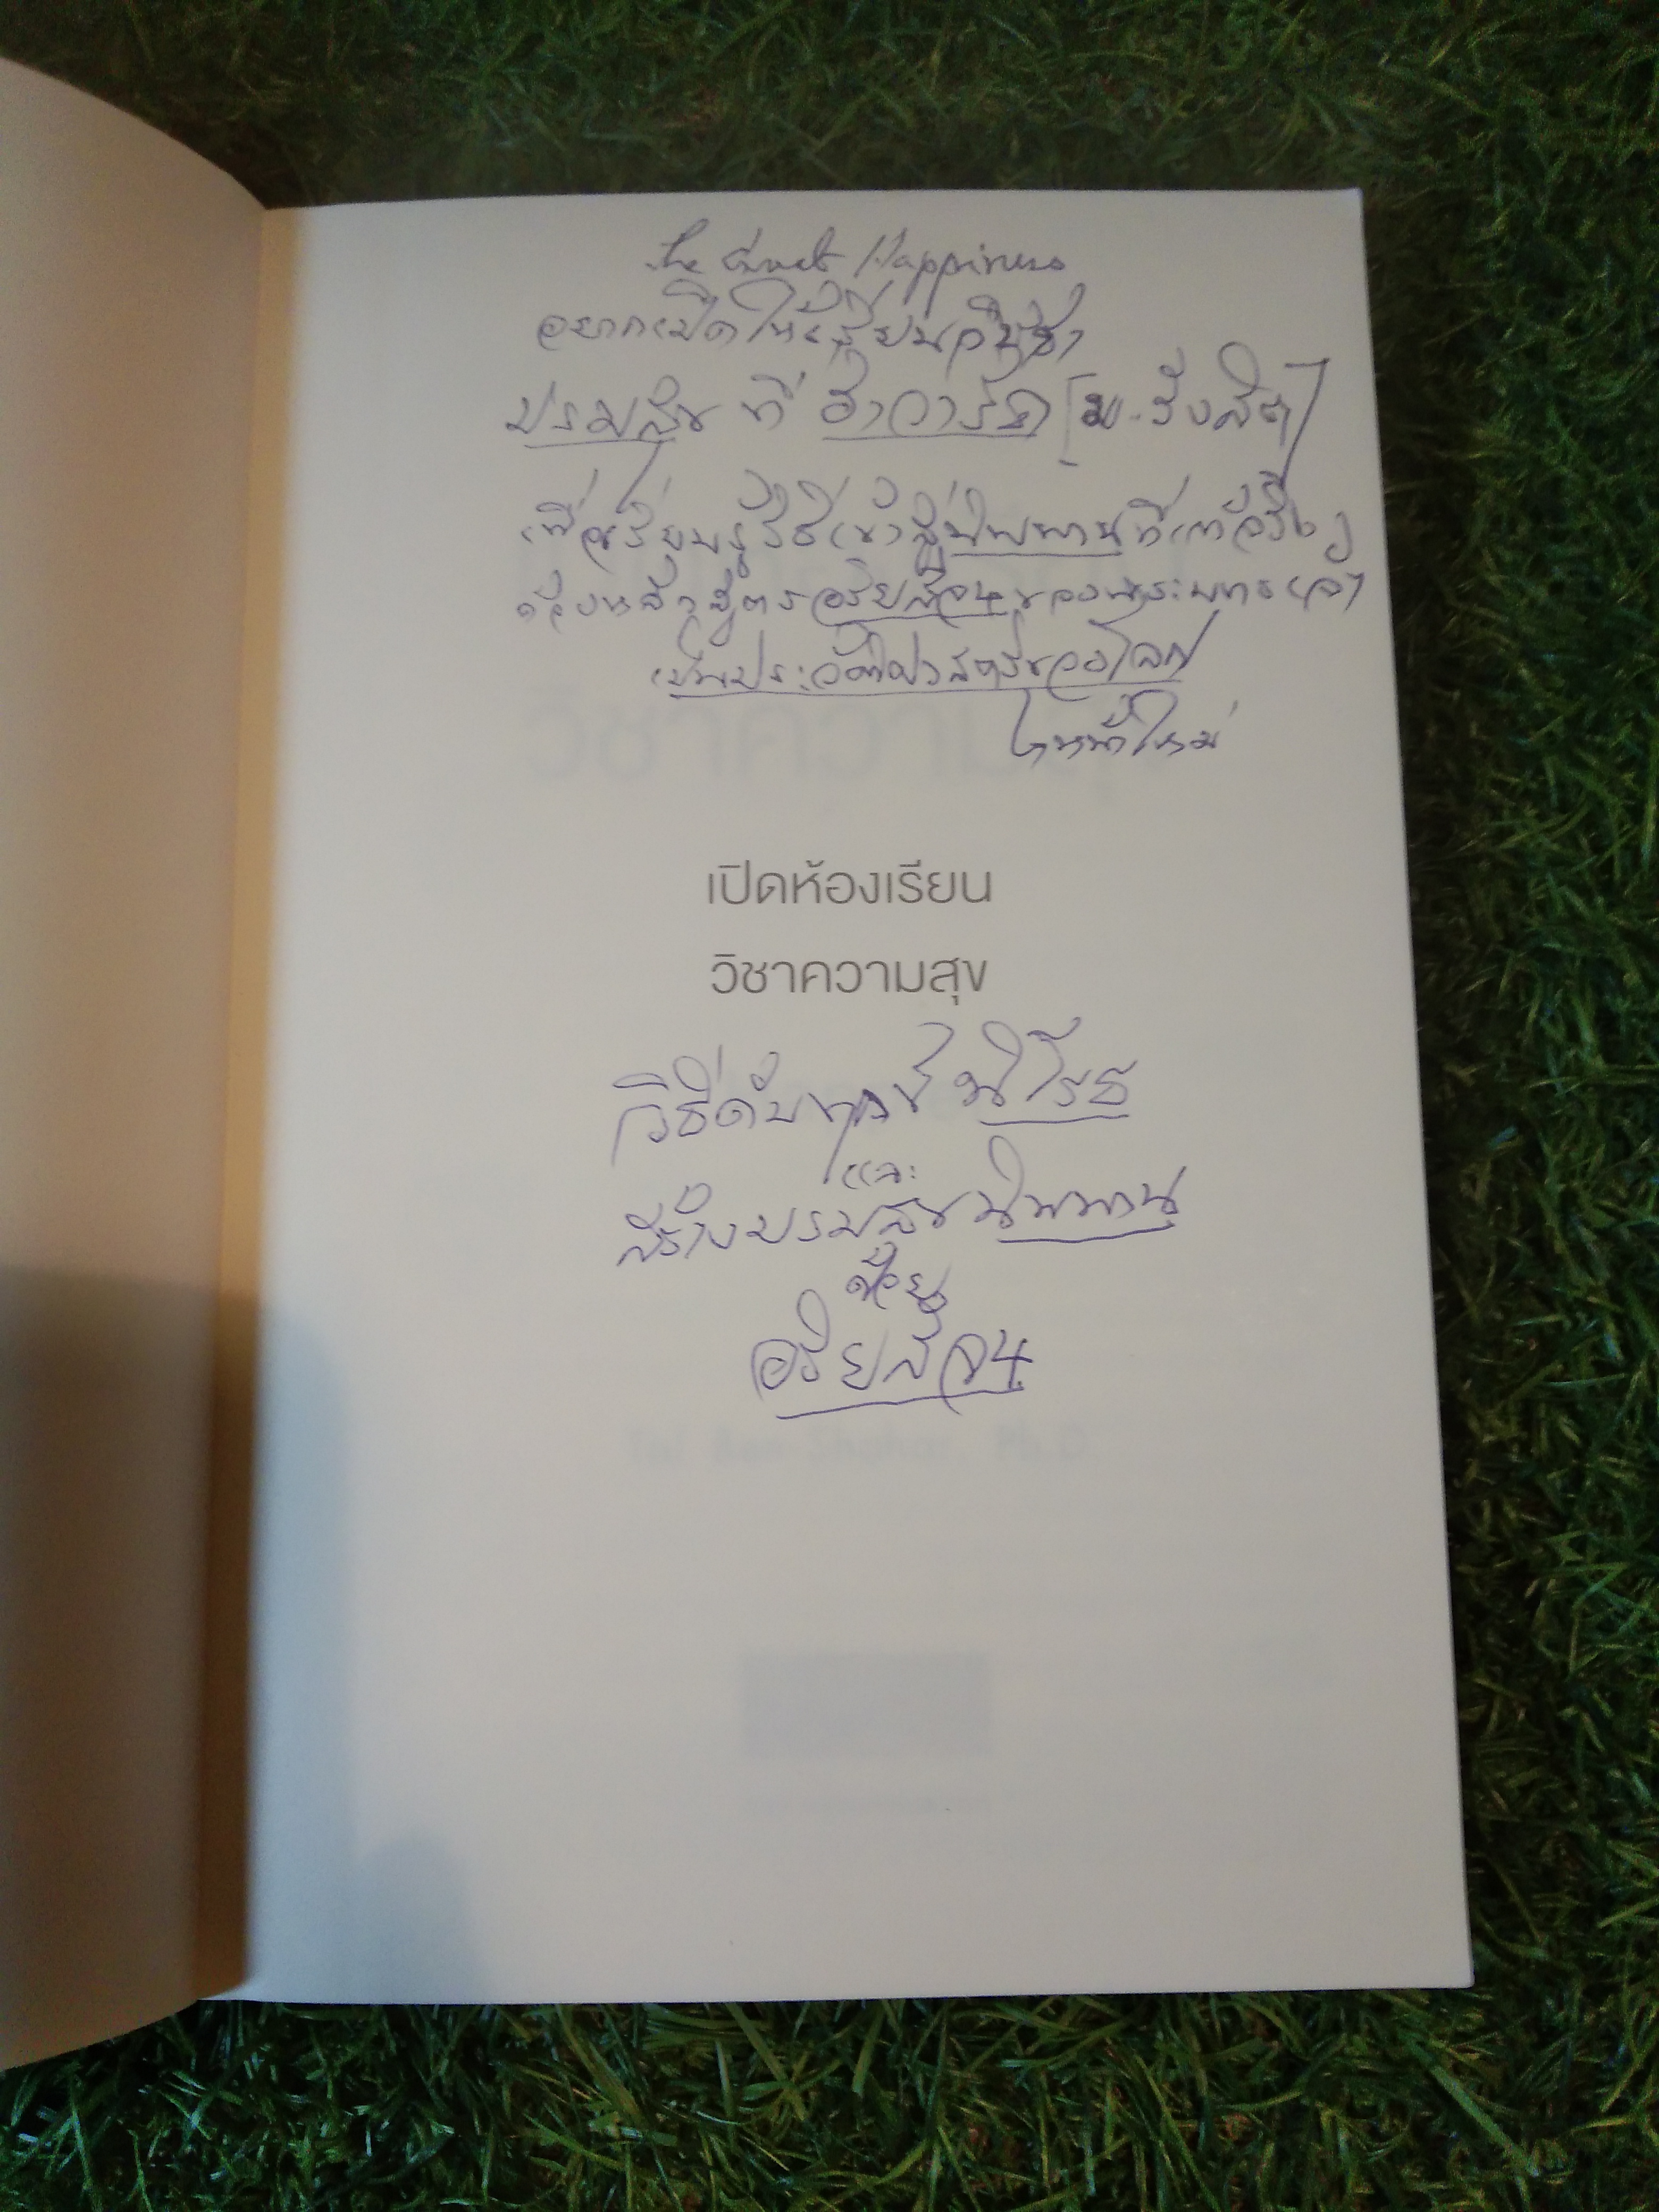 The Great Happiness
อยากเปิดให้เรียนวิชา
บรมสุข ที่ ฮาวาร์ด [ม.รังสิต]
เพื่อเรียนรู้วิธีเข้าสู่นิพพานที่แท้จริง
ด้วยหลักสูตรอริยสัจ4ของพระพุทธเจ้า
เป็นประวัติศาสตร์ของโลก
หน้าใหม่
เปิดห้องเรียน
วิชาความสุข
วิธีดับทุกข์ นิโรธ
และ
สร้างบรมสุขนิพพาน
ด้วย
อริยสัจ4
วิชาความสุข
Tal Ben-Shahar, Ph.D.